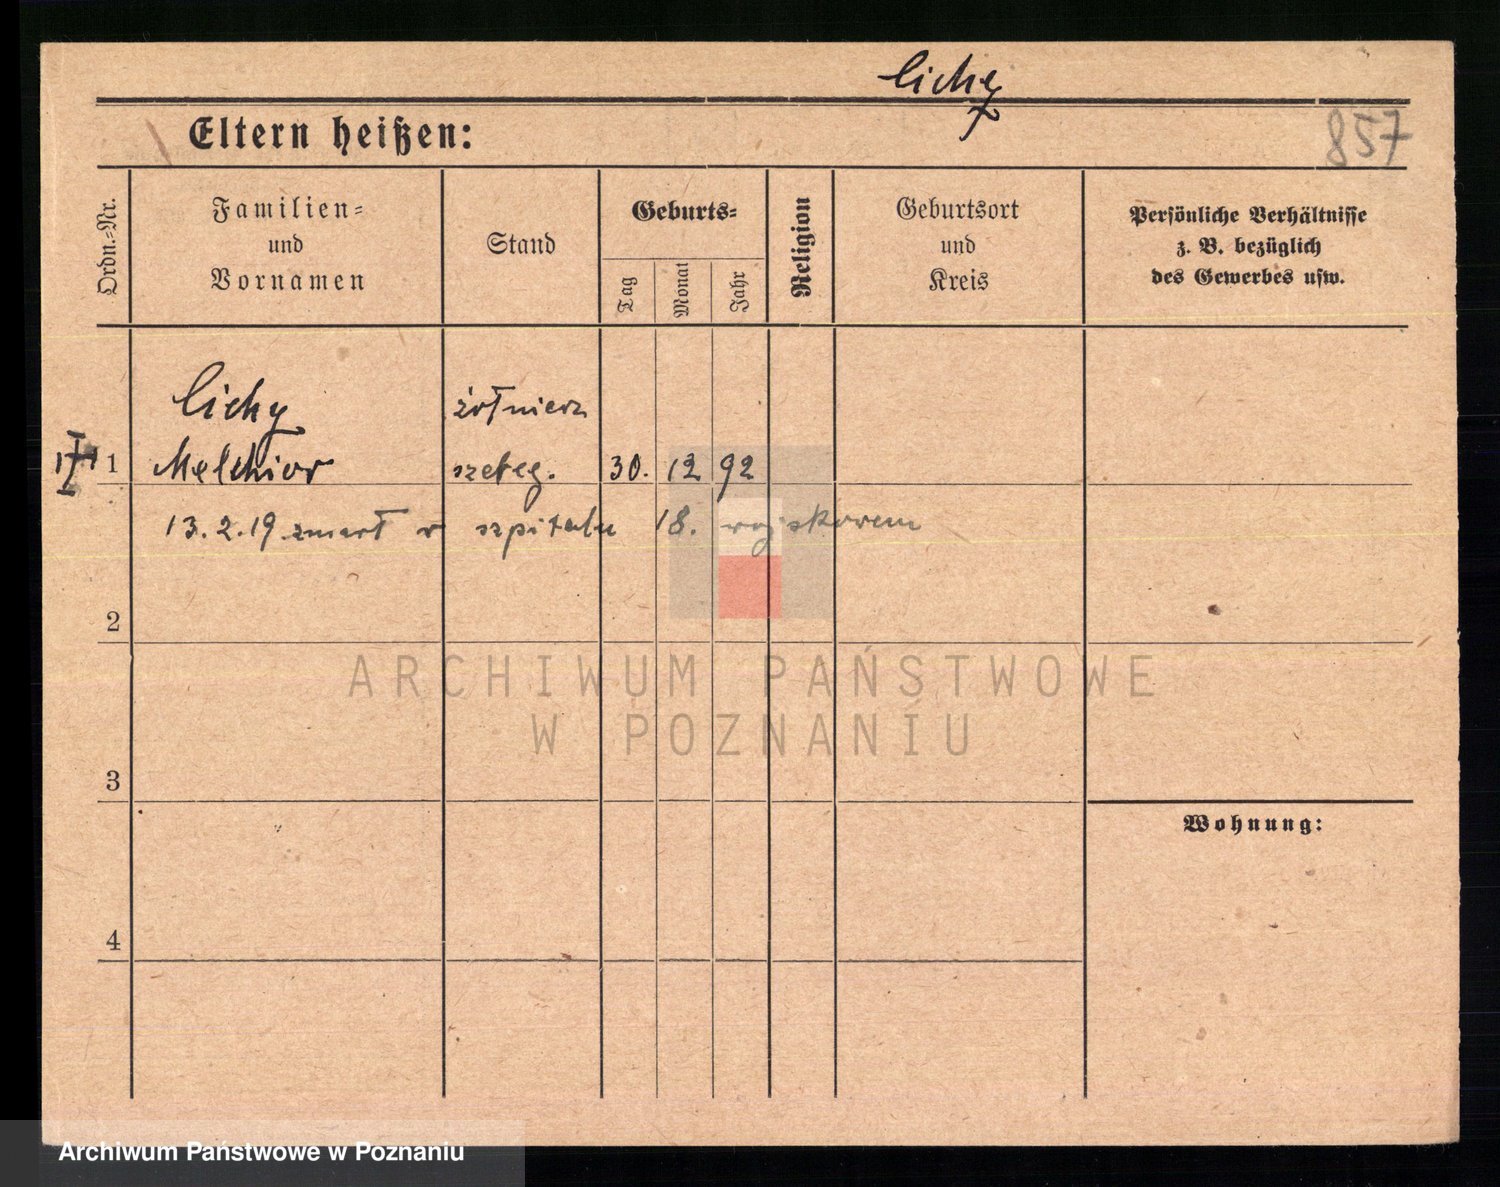 Cichy
Eltern heißen:
857
Ordn.-Nr.
Familien-
und
Vornamen
Stand
Geburts-
Tag
Monat
Jahr
Religion
Geburtsort
und
Kreis
Persönliche Verhältnisse
z. B. bezüglich
des Gewerbes usw.
Cichy żołnierz
1 Melchior szereg. 30. 12 92
13.2.19 zmarł w szpitalu 18. wojskowem
2
ARCHIWUM PAŃSTWOWE
W POZNANIU
3
Wohnung:
4
Archiwum Państwowe w Poznaniu